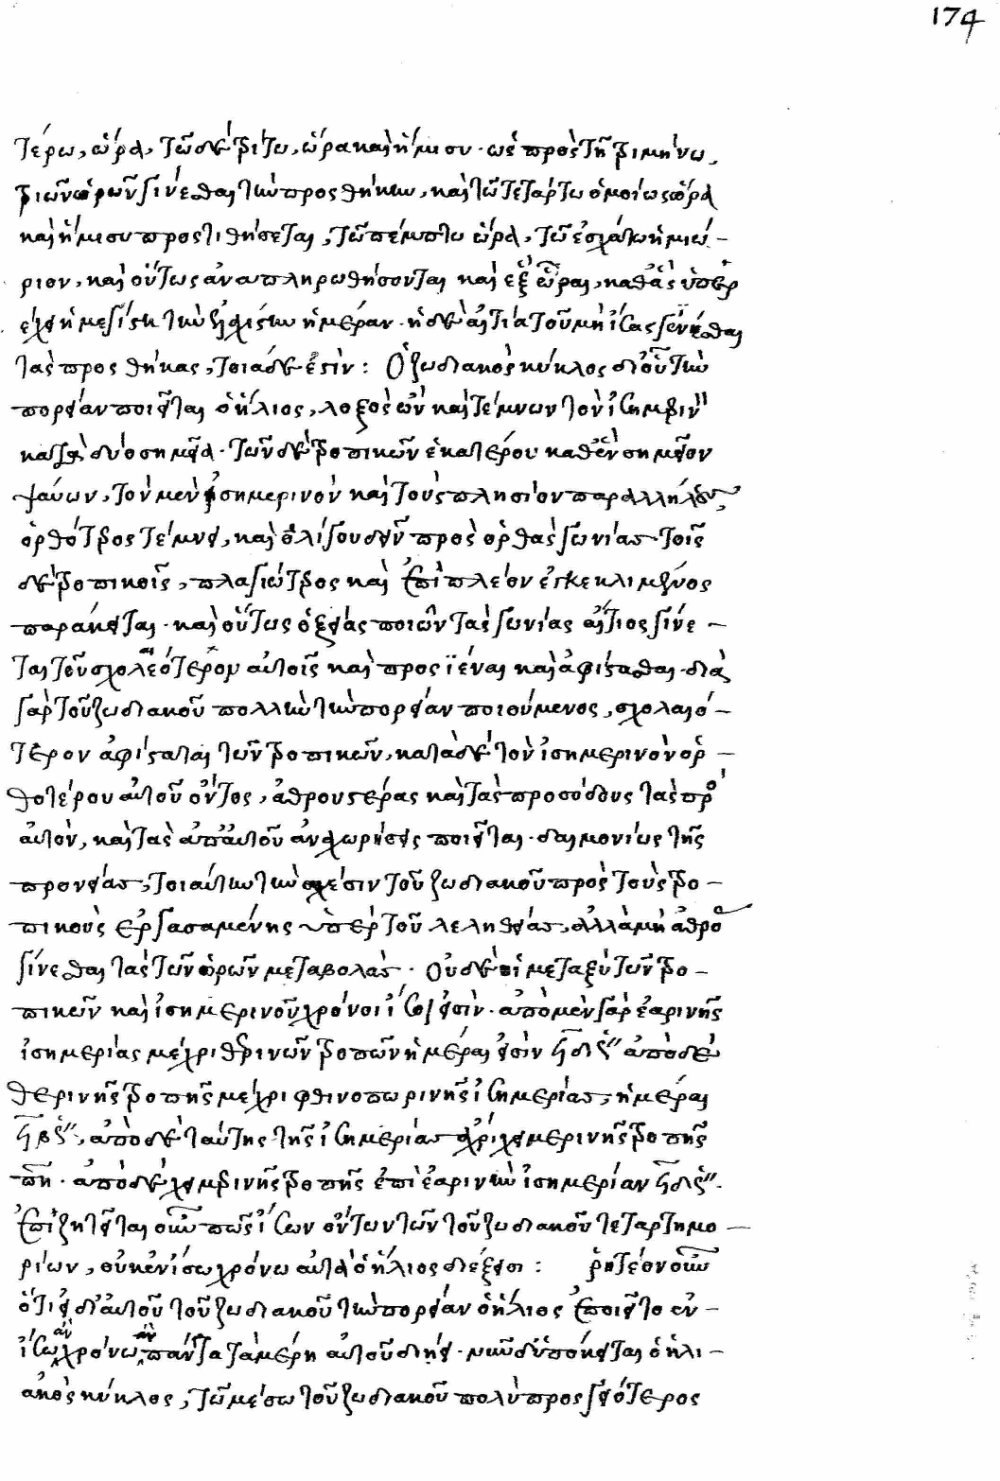 174
τέρω, ὥρα, τῶ δὲ τρίτω, ὥρα καὶ ἥμισυ· ὡς πρὸς τῆ τριμήνω,
τριῶν ὡρῶν γίνεσθαι τὴν προσθήκην, καὶ τῶ τετάρτω ὁμοίως ὥρα
καὶ ἥμισυ προστιθήσεται, τῶ πέμπτω ὥρα, τῶ ἐσχάτω ἡμιώ-
ριον, καὶ οὕτως ἀναπληρωθήσονται καὶ ἓξ ὧραι, καθ' ἃς ὑπερ
έχει ἡ μεγίστη τὴν ἐλαχίστην ἡμέραν· ἡ δὲ αἰτία τοῦ μὴ ἴσας γίνεσθαι
τὰς προσθήκας, τοιάδε ἐστὶν: Ὁ ζωδιακὸς κύκλος δι' οὗ τὴν
πορείαν ποιεῖται ὁ ἥλιος, λοξὸς ὢν καὶ τέμνων τὸν ἰσημερινὸν
κατὰ δύο σημεῖα· τῶν δὲ τροπικῶν ἑκατέρου καθ' ἓν σημεῖον
ψαύων, τὸν μὲν ἰσημερινὸν καὶ τοὺς πλησίον παραλλήλους,
ὀρθότερος τέμνει, καὶ ὀλίγου δεῖν πρὸς ὀρθὰς γωνίας· τοῖς
δὲ τροπικοῖς, πλαγιώτερος καὶ ἐπὶ πλέον ἐγκεκλιμένος
παράκειται· καὶ οὕτως ὀξείας ποιῶν τὰς γωνίας αἴτιος γίνε-
ται τοῦ σχολαιότερον αὐτοῖς καὶ προσϊέναι καὶ ἀφίστασθαι· διὰ
γὰρ τοῦ ζωδιακοῦ πολλὴν τὴν πορείαν ποιούμενος, σχολαιό-
τερον ἀφίσταται τῶν τροπικῶν, κατὰ δὲ τὸν ἰσημερινὸν ὀρ-
θοτέρου αὐτοῦ ὄντος, ἀθρουστέρας καὶ τὰς προσόδους τὰς πρὸς
αὐτὸν, καὶ τὰς ἀπ' αὐτοῦ ἀναχωρήσεις ποιεῖται· δαιμονίως τῆς
προνοίας, τοιαύτην τὴν σχέσιν τοῦ ζωδιακοῦ πρὸς τοὺς τρο-
πικοὺς ἐργασαμένης ὑπὲρ τοῦ λεληθείας, ἀλλὰ μὴ ἀθρό
γίνεσθαι τὰς τῶν ὡρῶν μεταβολὰς· Οὐδὲ οἱ μεταξὺ τῶν τρο-
πικῶν καὶ ἰσημερινοῦ χρόνοι ἴσοι εἰσὶν· ἀπὸ μὲν γὰρ ἐαρινῆς
ἰσημερίας μέχρι θερινῶν τροπῶν ἡμέραι εἰσὶν ϟδ ϛ'' ἀπὸ δὲ
θερινῆς τροπῆς μέχρι φθινοπωρινῆς ἰσημερίας, ἡμέραι
ϟβ ϛ'', ἀπὸ δὲ ταύτης τῆς ἰσημερίας ἄχρι χειμερινῆς τροπῆς
πη· ἀπὸ δὲ χειμερινῆς τροπῆς ἐπὶ ἐαρινὴν ἰσημερίαν ϟδ ϛ''.
Ἐπιζητεῖται οὖν πῶς ἴσων ὄντων τῶν τοῦ ζωδιακοῦ τεταρτημο-
ρίων, οὐκ ἐν ἴσω χρόνω αὐτὰ ὁ ἥλιος διέξεισι: ῥητέον οὖν
ὅτι εἰ δι' αὐτοῦ τοῦ ζωδιακοῦ τὴν πορείαν ὁ ἥλιος ἐποιεῖτο ἐν
ἴσω ἂν χρόνω ἂν πάντα τὰ μέρη αὐτοῦ διῄει· νῦν δ' ὑπόκειται ὁ ἡλι-
ακὸς κύκλος, τῶ μέσω τοῦ ζωδιακοῦ πολὺ προσγειότερος